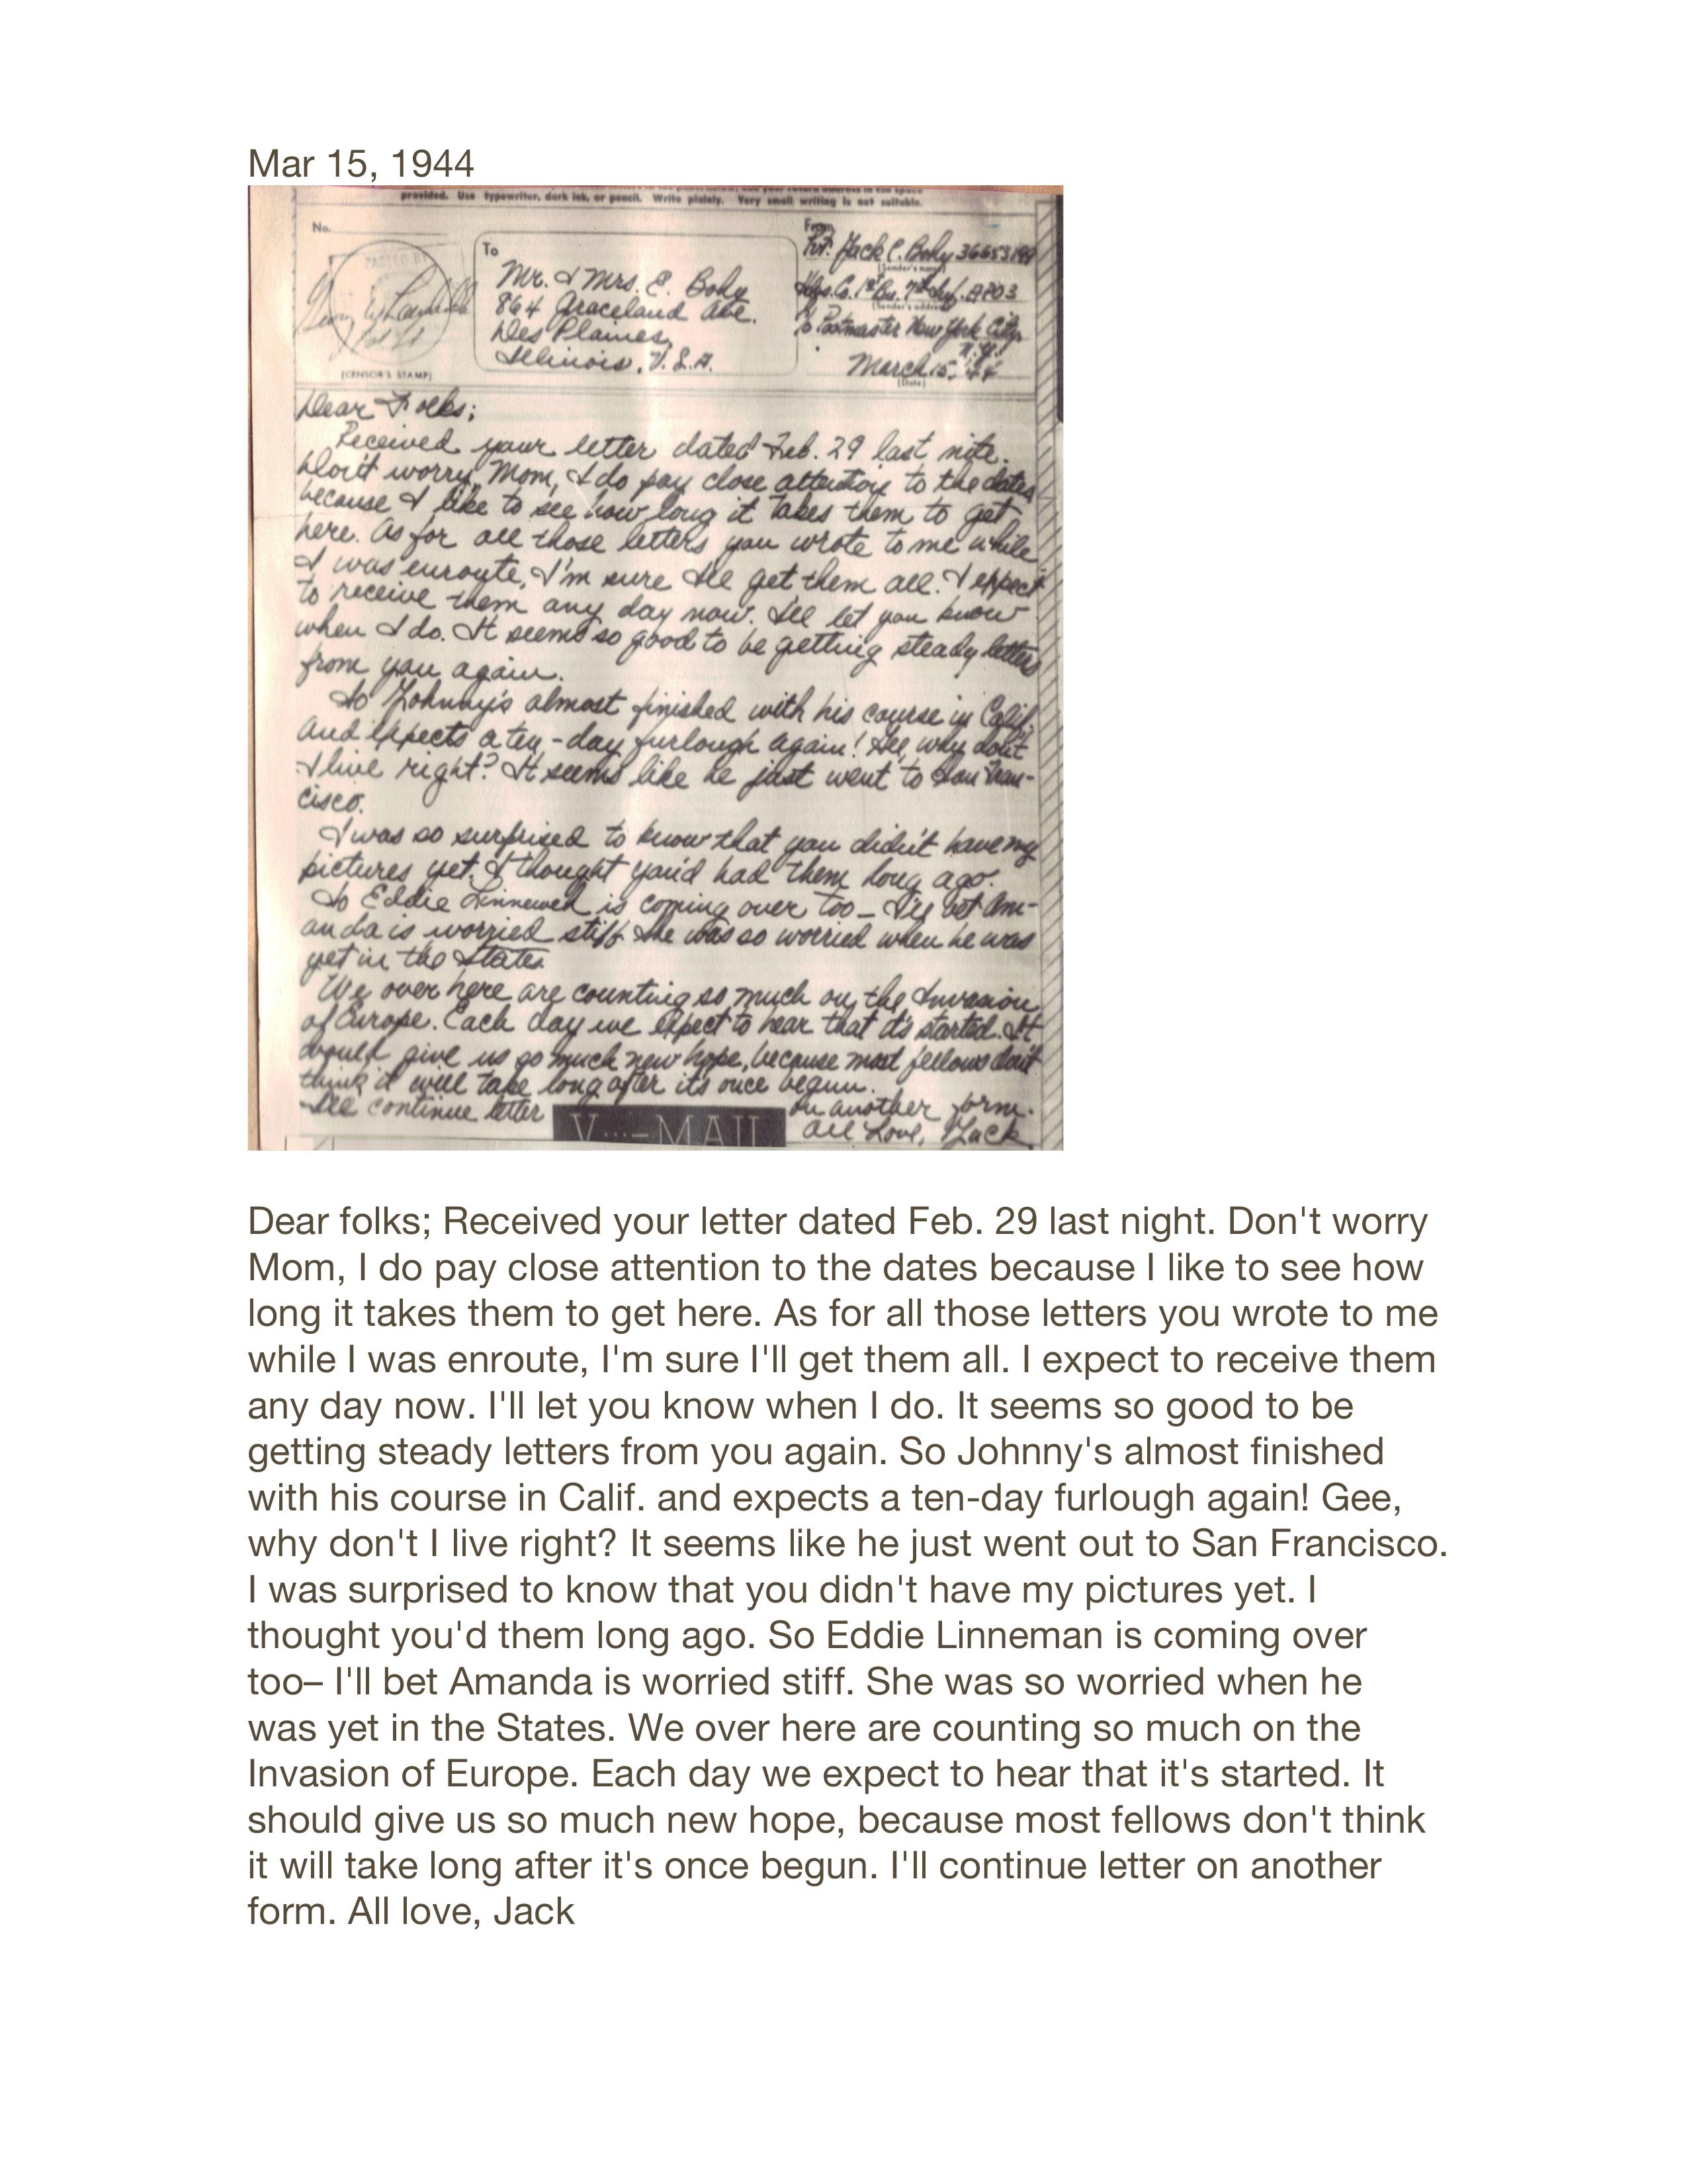 Mar 15, 1944
provided. Use typewriter, dark ink, or pencil. Write plainly. Very small writing is not suitable.
No.
PASSED BY
(CENSOR'S STAMP)
To
Mr. & Mrs. E. Body
864 Graceland Ave.
Des Plaines,
Illinois, U.S.A.
From
Pvt. Jack C. Body 36653199
(Sender's name)
Hqs. Co. 1st Bn. 7th Inf. APO3
(Sender's address)
c/o Postmaster New York City,
N.Y.
March 15, '44
(Date)
Dear Folks;
Received your letter dated Feb. 29 last nite.
Don't worry, Mom, I do pay close attention to the dates
because I like to see how long it takes them to get
here. As for all those letters you wrote to me while
I was enroute, I'm sure I'll get them all. I expect
to receive them any day now. I'll let you know
when I do. It seems so good to be getting steady letters
from you again.
So Johnny's almost finished with his course in Calif.
and expects a ten-day furlough again! Gee, why don't
I live right? It seems like he just went to San Fran-
cisco.
I was so surprised to know that you didn't have my
pictures yet. I thought you'd had them long ago.
So Eddie is coming over too – I'll bet Am-
anda is worried stiff. She was so worried when he was
yet in the States.
We over here are counting so much on the Invasion
of Europe. Each day we expect to hear that it's started. It
would give us so much new hope, because most fellows don't
think it will take long after its once begun.
I'll continue letter on another form.
V···-MAIL
All Love, Jack
Dear folks; Received your letter dated Feb. 29 last night. Don't worry
Mom, I do pay close attention to the dates because I like to see how
long it takes them to get here. As for all those letters you wrote to me
while I was enroute, I'm sure I'll get them all. I expect to receive them
any day now. I'll let you know when I do. It seems so good to be
getting steady letters from you again. So Johnny's almost finished
with his course in Calif. and expects a ten-day furlough again! Gee,
why don't I live right? It seems like he just went out to San Francisco.
I was surprised to know that you didn't have my pictures yet. I
thought you'd them long ago. So Eddie Linneman is coming over
too– I'll bet Amanda is worried stiff. She was so worried when he
was yet in the States. We over here are counting so much on the
Invasion of Europe. Each day we expect to hear that it's started. It
should give us so much new hope, because most fellows don't think
it will take long after it's once begun. I'll continue letter on another
form. All love, Jack